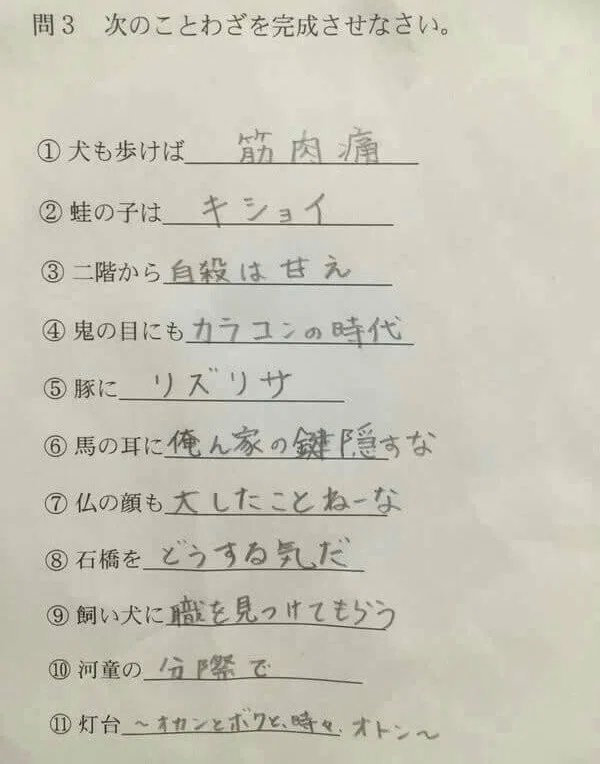 問3 次のことわざを完成させなさい。
①犬も歩けば筋肉痛
②蛙の子はキショイ
③二階から自殺は甘え
④鬼の目にもカラコンの時代
⑤豚にリズリサ
⑥馬の耳に俺ん家の鍵隠すな
⑦仏の顔も大したことねーな
⑧石橋をどうする気だ
⑨飼い犬に職を見つけてもらう
⑩河童の分際で
⑪灯台〜オカンとボクと、時々、オトン〜